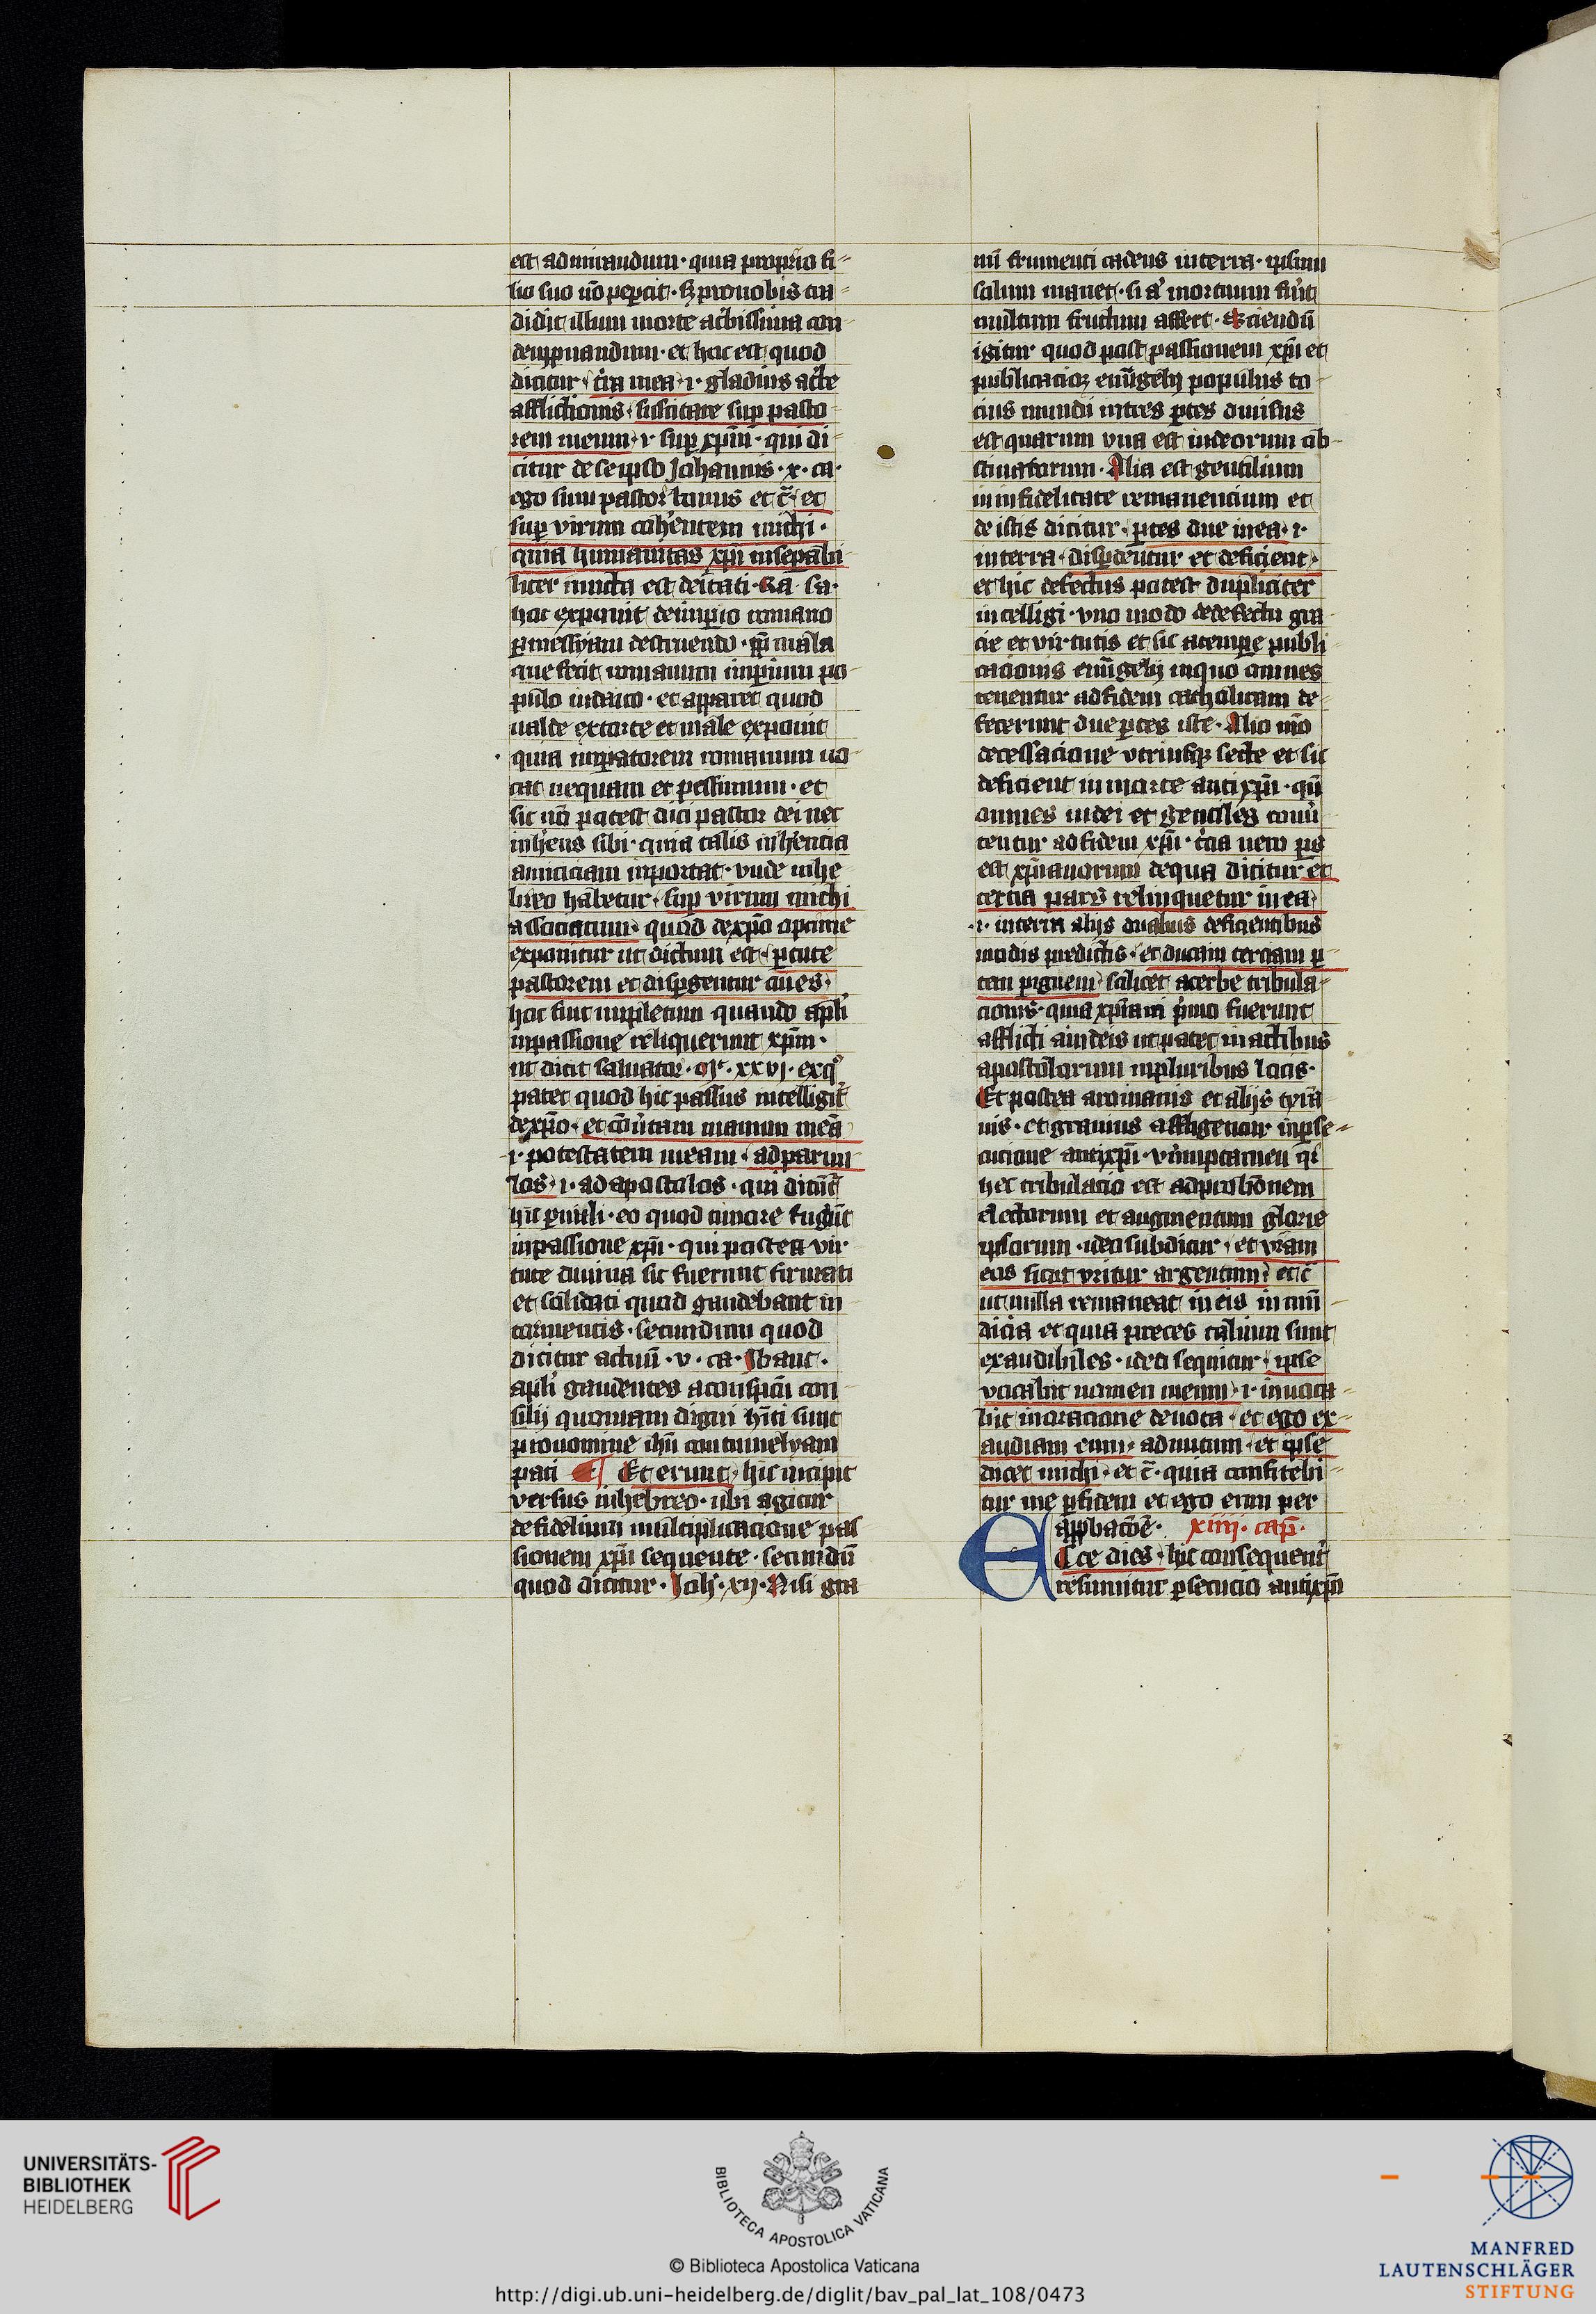 est admirandum · quia proprio fi-
lio suo nō peꝑcit · sꝫ pro nobis tra-
didit illum morte acˀbissima con-
dempnandum · et hoc est quod
dicitur · fͥa mea · i · gladius acˀbe
afflictionis · suscitare suꝑ pasto-
rem meum · i · suꝑ xp̄m · qui di-
citur de seipso Johannis · x · ca ·
ego sum pastor bonus et c̄ · et
suꝑ virum cohˀentem michi ·
quia humanitas xp̄i inseꝑabi
liter iuncta est deitati · Ra · sa ·
hoc exponit de imꝑio romano
ꝑ messyam destruendo · ꝓpt̄ mala
que fecit romanum imꝑium po-
pulo iudaico · et apparet quod
ualde extorte et male exponit
quia imꝑatorem romanum uo-
cat nequam et pessimum · et
sic nō potest dici pastor dei nec
inhˀens sibi · quia talis inhˀencia
amiciciam importat · vnde in he-
breo habetur · suꝑ virum michi
associatum · quod de xp̄o optime
exponitur ut dictum est · ꝑcute
pastorem et disꝑgentur oues ·
hoc fuit impletum quando apl̄i
in passione reliquerunt xp̄m ·
ut dicit saluator · Mͭ · xxvj · ex qͦ
patet quod hic passus intelligit᷑
de xp̄o · et conˀtam manum meā
i · potestatem meam · ad paruu
los · i · ad apostolos · qui dicūt᷑
hic ꝑuuli · eo quod timore fugˀūt
in passione xp̄i · qui postea vir-
tute diuina sic fuerunt firmati
et solidati quod gaudebant in
tormentis · secundum quod
dicitur actuū · v · ca · Ibant ·
apl̄i gaudentes a conspc̄u con-
silij quoniam digni hīti sunt
pro nomine ihū contumelyam
pati ¶ Et erunt · hic incipit
versus in hebreo · ubi agitur
de fidelium multiplicacione pas
sionem xp̄i sequente · secundū
quod dicitur · Joh̄ · xij · Nisi gra
nū frumenti cadens in terra · ipsum
solum manet · si aͫ mortuum fuˀit
multum fructum affert · Sciendū
igitur quod post passionem xp̄i et
publicacioꝫ euūgelij populus to-
cius mundi in tres ꝑtes diuisus
est quarum vna est iudeorum ob-
stinatorum · Alia est gentilium
in infidelitate remanencium et
de istis dicitur · ꝑtes due in ea · i ·
in terra · disꝑdentur et deficient ·
et hic defectus potest dupliciter
intelligi · vno modo de defectu gra
cie et virtutis et sic a tempore publi
cacionis euūgelij in quo omnes
tenentur ad fidem catholicam de-
fecerunt due ꝑtes iste · Alio mō
de cessacione vtriusqꝫ secte et sic
deficient in morte antixp̄i · qn̄
omnes iudei et gentiles conuˀ
tentur ad fidem xp̄i · tˀcia uero ꝑs
est xp̄ianorum de qua dicitur et
tercia pars relinquetur in ea ·
i · in terra alijs duabus deficientibus
modis predictis · et ducam terciam ꝑ-
tem ꝑ ignem · scilicet acerbe tribula-
cionis · quia xp̄iani pͥmo fuerunt
afflicti a iudeis ut patet in actibus
apostolorum in pluribus locis ·
Et postea a romanis et alijs tyrā
nis · et grauius affligentur in ꝑse-
cucione antixp̄i · vˀumptamen qͥ
hec tribulacio est ad probōnem
electorum et augmentum glorie
ipsorum · ideo subditur · et vram
eos sicut vritur argentum · et c̄
ut nulla remaneat in eis inmū
dicia et quia preces talium sunt
exaudibiles · ideo sequitur · ipse
vocabit nomen meum · i · inuoca-
bit in oracione deuota · et ego ex-
audiam eum · ad nutum · et ipse
dicet michi · et c̄ · quia confitebi-
tur me ꝑ fidem et ego eum per
appbacōē · xiiij · cap̄ ·
Ecce dies · hic consequent᷑
resumitur ꝑsecucio antixp̄i
UNIVERSITÄTS-
BIBLIOTHEK
HEIDELBERG
BIBLIOTECA APOSTOLICA VATICANA
© Biblioteca Apostolica Vaticana
http://digi.ub.uni-heidelberg.de/diglit/bav_pal_lat_108/0473
MANFRED
LAUTENSCHLÄGER
STIFTUNG